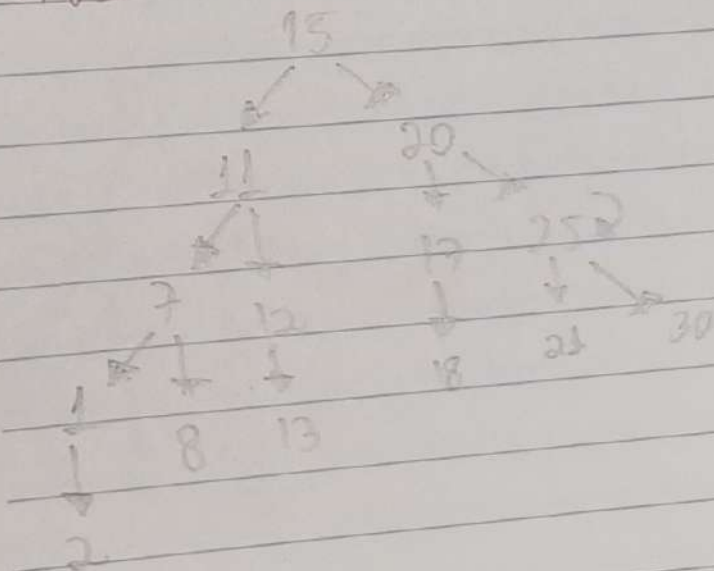 15
11 20
7 12 17 25
1 8 13 18 21 30
2